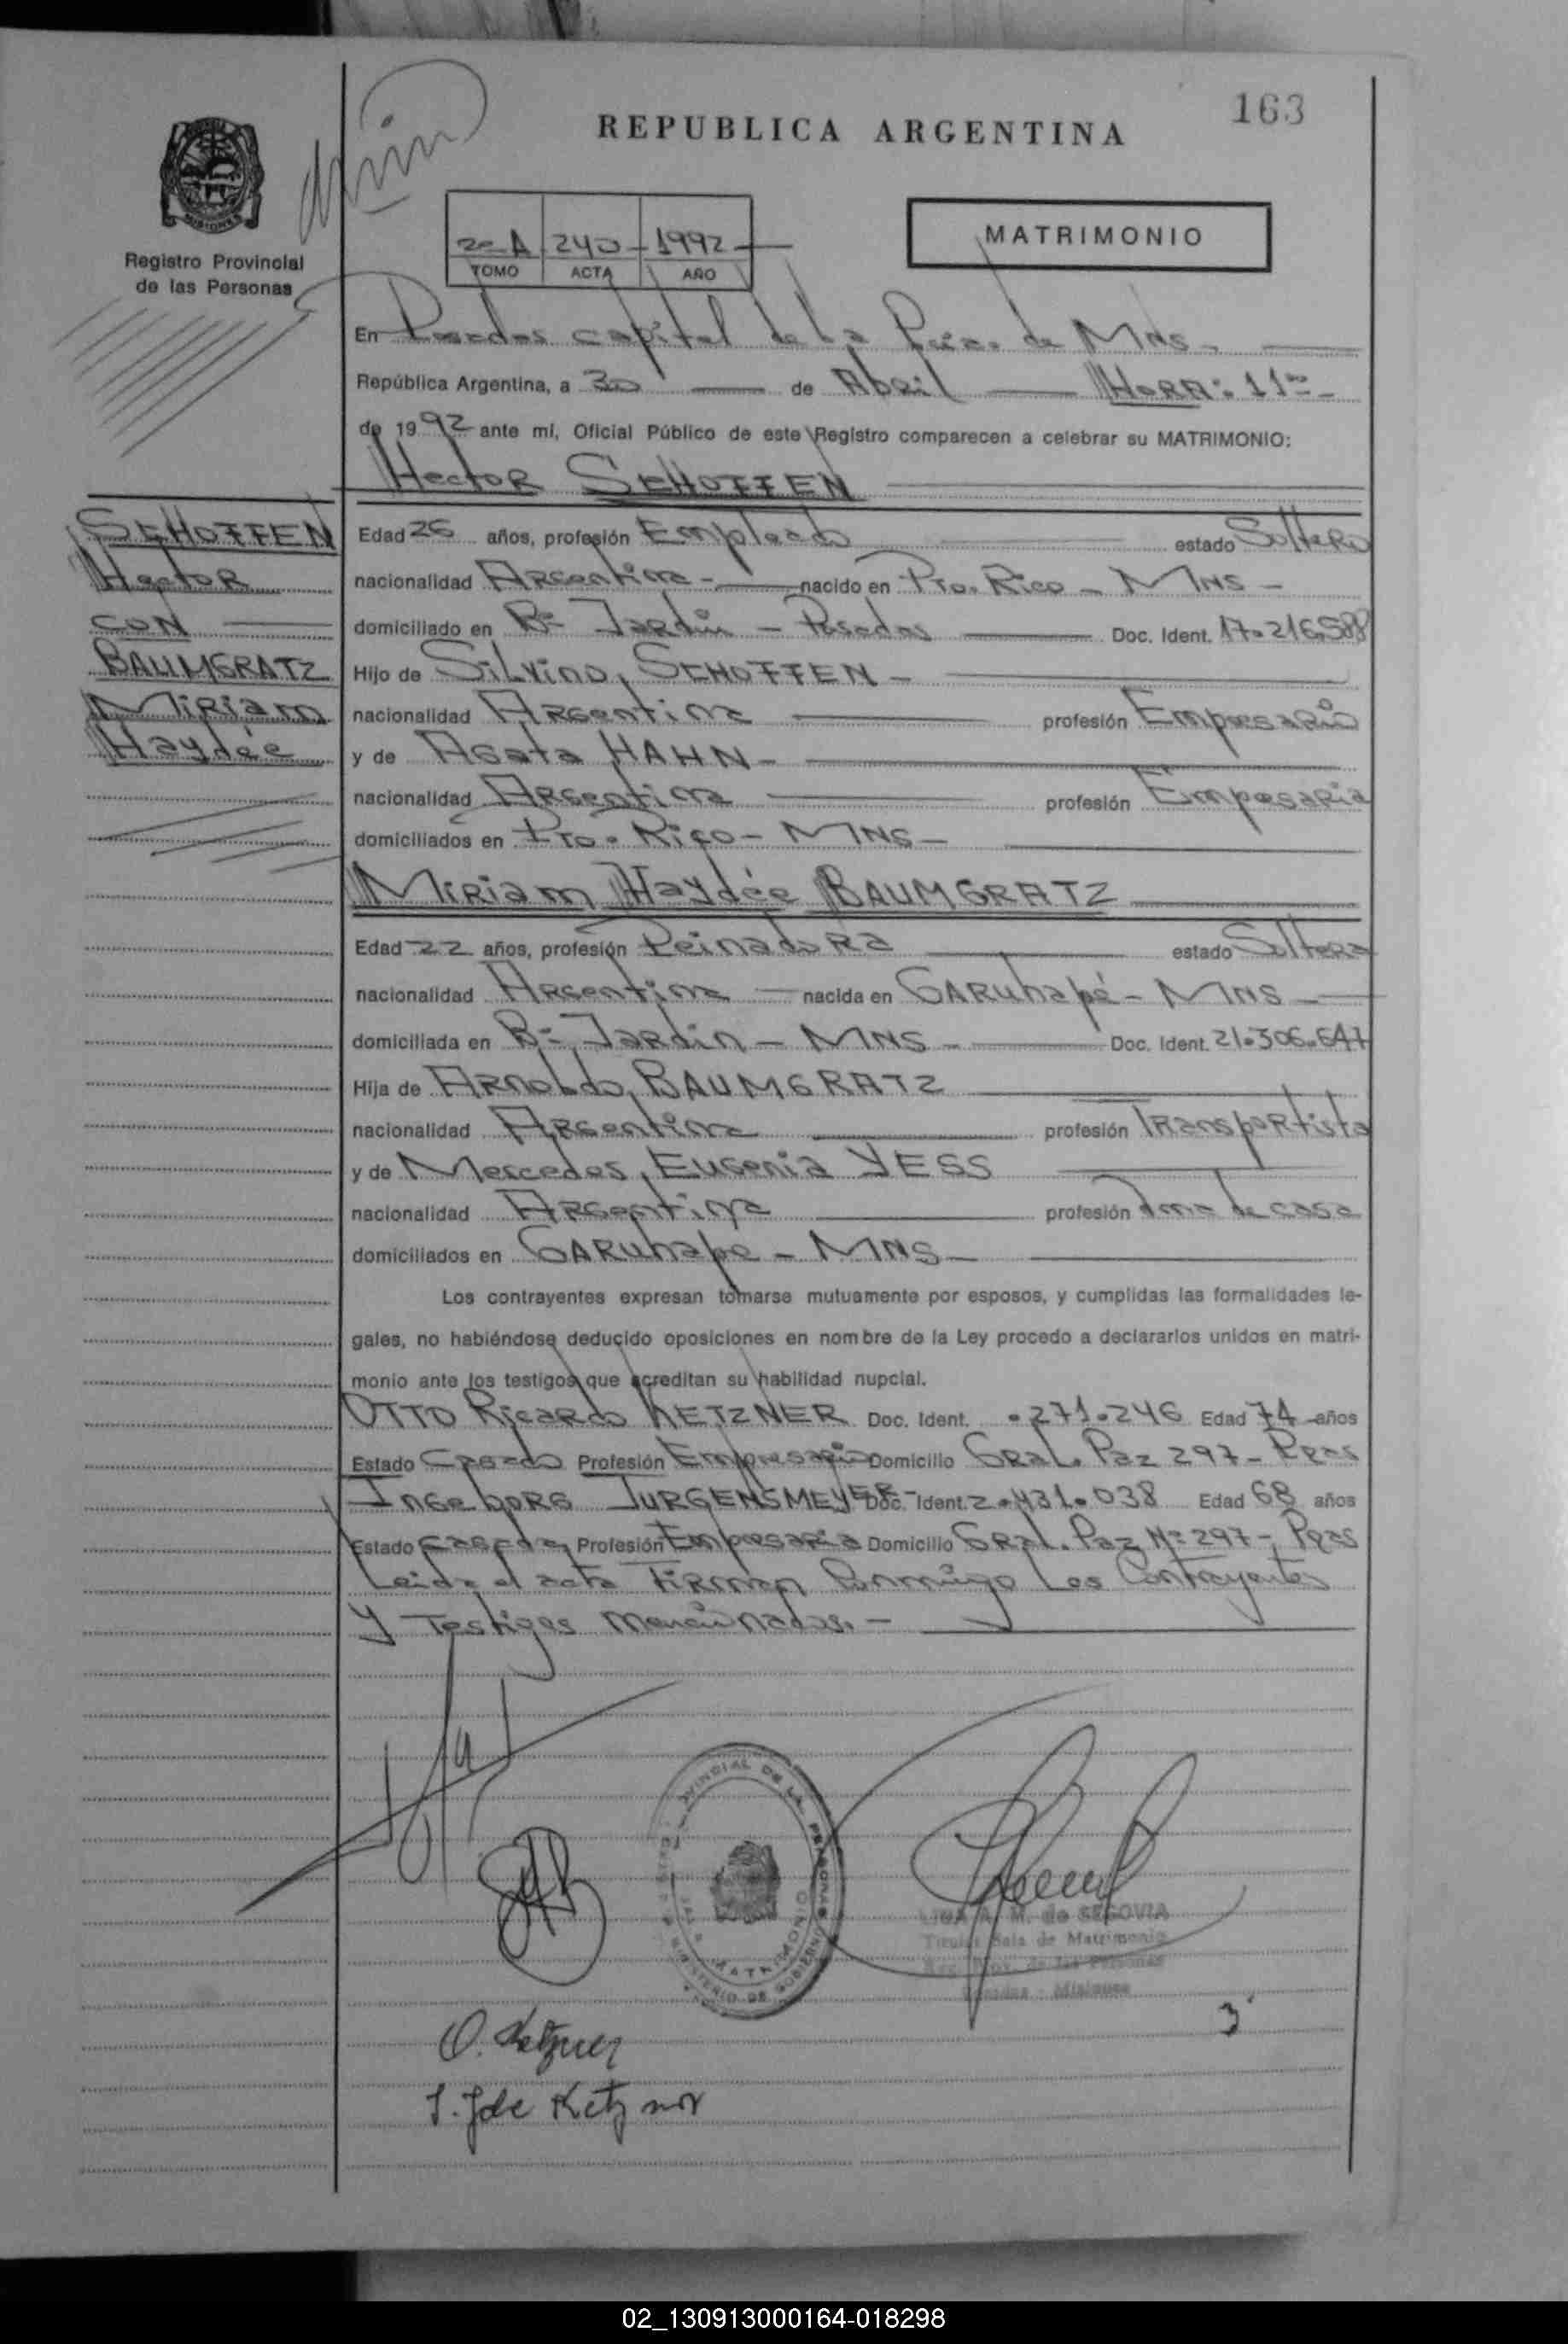 163
REPUBLICA ARGENTINA
MISIONES
Registro Provincial
de las Personas
2º A 240 1992
TOMO ACTA AÑO
MATRIMONIO
En Posadas capital de la Pcia. de MNS -
República Argentina, a 30 de Abril HORA: 11
de 1992 ante mí, Oficial Público de este Registro comparecen a celebrar su MATRIMONIO:
Hector SEHOFFEN
SEHOFFEN
Hector
CON
BAUMGRATZ
Miriam
Haydée
Edad 26 años, profesión Empleado estado Soltero
nacionalidad Argentina - nacido en Pto. Rico - MNS -
domiciliado en Bº Jardin - Posadas Doc. Ident. 17.216.588
Hijo de Silvino, SEHOFFEN -
nacionalidad Argentina profesión Empresario
y de Agata HAHN -
nacionalidad Argentina profesión Empresaria
domiciliados en Pto. Rico - MNS -
Miriam Haydée BAUMGRATZ
Edad 22 años, profesión Peinadora estado Soltera
nacionalidad Argentina nacida en GARUhapé - MNS -
domiciliada en Bº Jardin - MNS - Doc. Ident. 21.306.647
Hija de Arnoldo, BAUMGRATZ
nacionalidad Argentina profesión Transportista
y de Mercedes, Eugenia YESS
nacionalidad Argentina profesión Ama de casa
domiciliados en GARUhape - MNS -
Los contrayentes expresan tomarse mutuamente por esposos, y cumplidas las formalidades le-
gales, no habiéndose deducido oposiciones en nombre de la Ley procedo a declararlos unidos en matri-
monio ante los testigos que acreditan su habilidad nupcial.
OTTO Ricardo KETZNER Doc. Ident. .271.246 Edad 74 años
Estado Casado Profesión Empresario Domicilio Gral. Paz 297 -
Ingeborg JURGENSMEYER - Doc. Ident. 2.431.038 Edad 68 años
Estado Casada Profesión Empresaria Domicilio Gral. Paz Nº 297 -
Leida el acta Firman Conmigo Los Contrayentes
y Testigos mencionados. -
PROVINCIAL DE LAS PERSONAS
MATRIMONIO
MINISTERIO DE GOBIERNO
A. M. de SEGOVIA
Titular Sala de Matrimonio
Reg. Prov. de las Personas
Posadas - Misiones
3
O. Ketzner
I. J de Ketzner
02_130913000164-018298